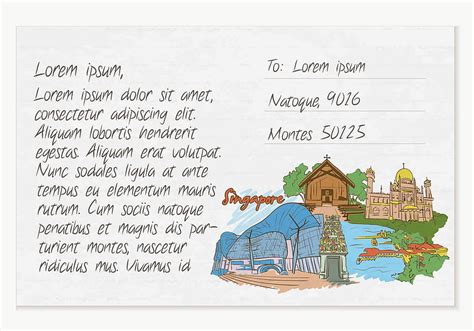 Lorem ipsum,
Lorem ipsum dolor sit amet,
consectetur adipiscing elit.
Aliquam lobortis hendrerit
egestas. Aliquam erat volutpat.
Nunc sodales ligula at ante
tempus eu elementum mauris
rutrum. Cum sociis natoque
penatibus et magnis dis par-
turient montes, nascetur
ridiculus mus. Vivamus id
To: Lorem ipsum
Natoque, 9016
Montes 50125
Singapore